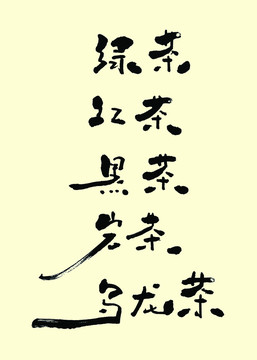 绿茶
红茶
黑茶
岩茶
乌龙茶